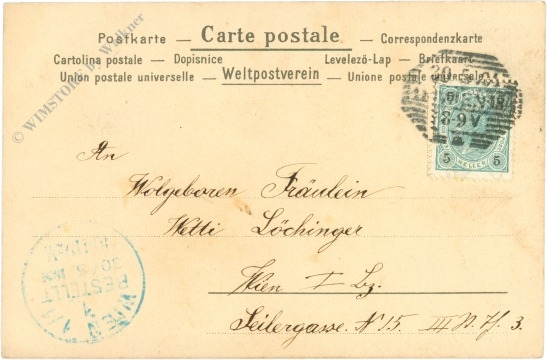 Postkarte — Carte postale — Correspondenzkarte
Cartolina postale — Dopisnice Levelező-Lap — Briefkaart
Union postale universelle — Weltpostverein — Unione postale universale
© WIMSTORE b. Walkner
5 HELLER 5
8-9V
An
Wolgeboren Fräulein
Netti Löchinger
Wien I Bz.
Seilergasse. N 15. III St. Th. 3.
WIEN 1/1
BESTELLT